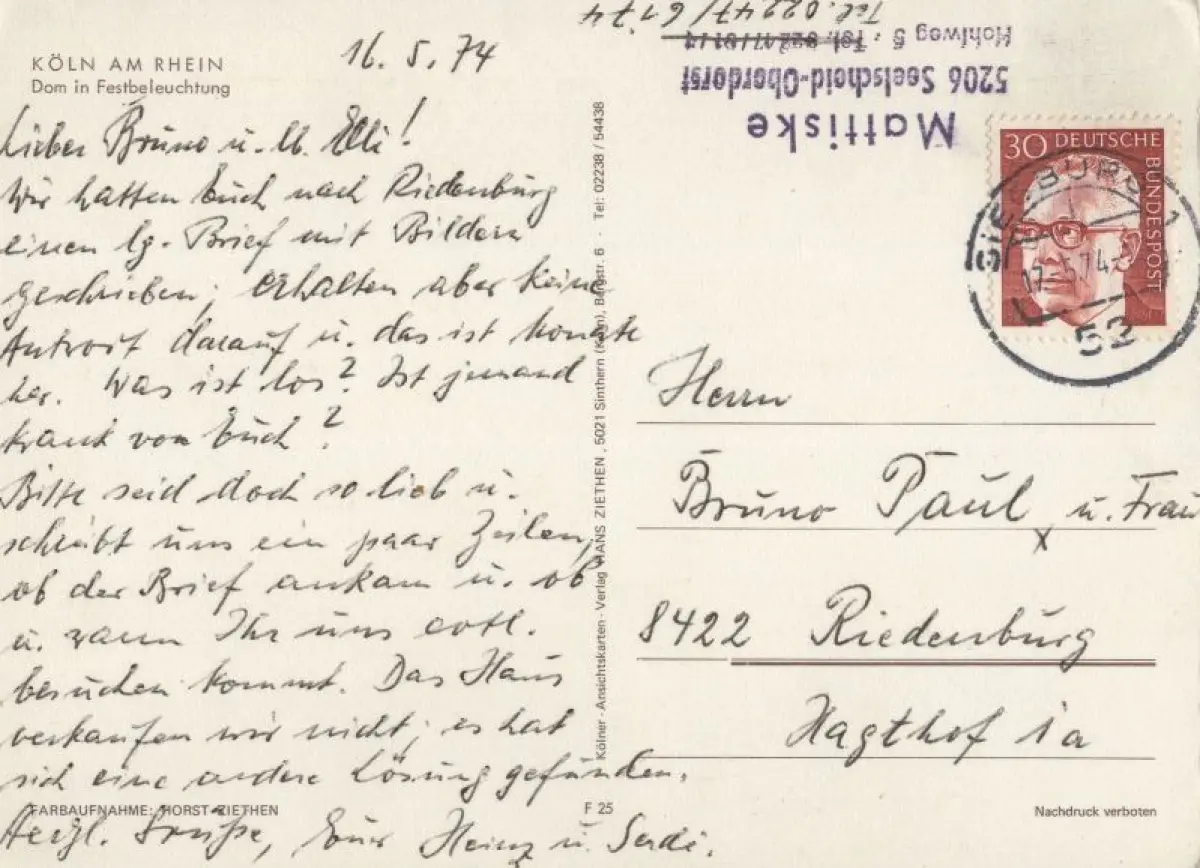 KÖLN AM RHEIN
Dom in Festbeleuchtung
16. 5. 74
Lieber Bruno u. lb. Elli!
Wir hatten Euch nach Riedenburg
einen lg. Brief mit Bildern
geschrieben; erhalten aber keine
Antwort darauf u. das ist Monate
her. Was ist los? Ist jemand
krank von Euch?
Bitte seid doch so lieb u.
schreibt uns ein paar Zeilen,
ob der Brief ankam u. ob
u. wann Ihr uns evtl.
besuchen kommt. Das Haus
verkaufen wir nicht; es hat
sich eine andere Lösung gefunden.
Herzl. Grüße, Eure Heinz u. Gerdi.
FARBAUFNAHME: HORST ZIETHEN
F 25
Kölner-Ansichtskarten-Verlag HANS ZIETHEN, 5021 Sinthern (Köln), Burgstr. 6 · Tel: 02238 / 54438
Mattiske
5206 Seelscheid-Oberdorst
Hohlweg 5 · Tel. 02247/6174
Tel. 02247/6174
30 DEUTSCHE BUNDESPOST
SIEGBURG 1
17.-5.74
52
Herrn
Bruno Paul u. Frau
8422 Riedenburg
Hagthof 1a
Nachdruck verboten